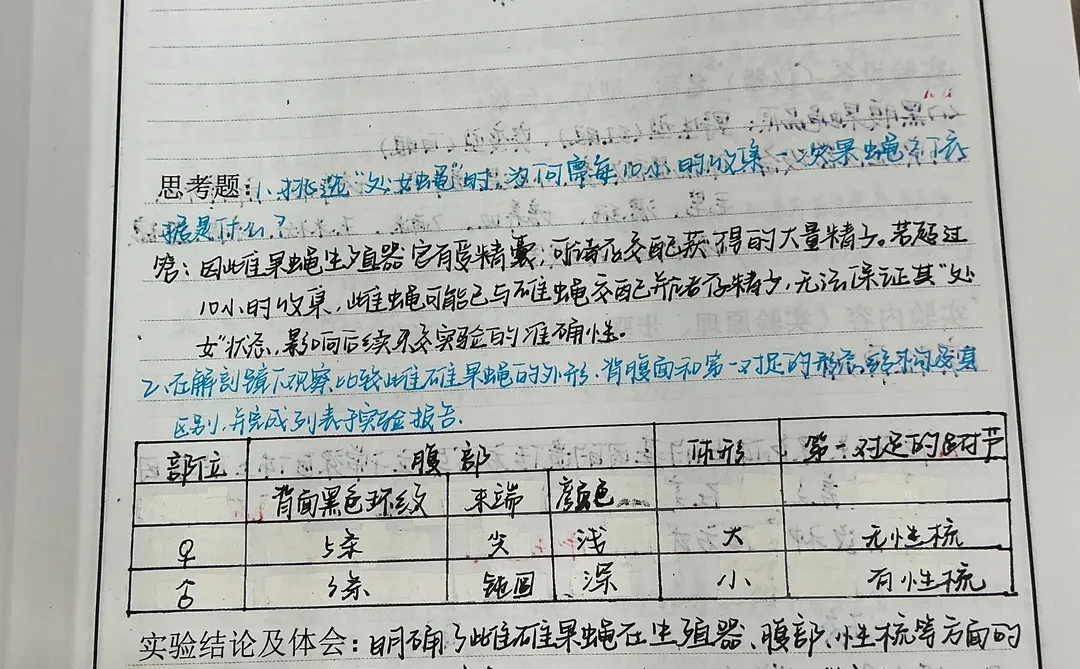 思考题:1、挑选“处女蝇”时,为何需每10小时收集一次果蝇?依
据是什么?
答:因雌果蝇生殖器官有受精囊,可储存交配获得的大量精子。若超过
10小时收集,雌蝇可能已与雄蝇交配并储存精子,无法保证其“处
女”状态,影响后续杂交实验的准确性。
2、在解剖镜下观察比较雌雄果蝇的外形、背腹面和第一对足的形态
区别,并完成列表于实验报告.
部位 腹部 体形 第一对足的跗节
背面黑色环纹 末端 颜色
♀ 5条 尖 浅 大 无性梳
♂ 3条 钝圆 深 小 有性梳
实验结论及体会:明确了雌雄果蝇在生殖器、腹部、性梳等方面的